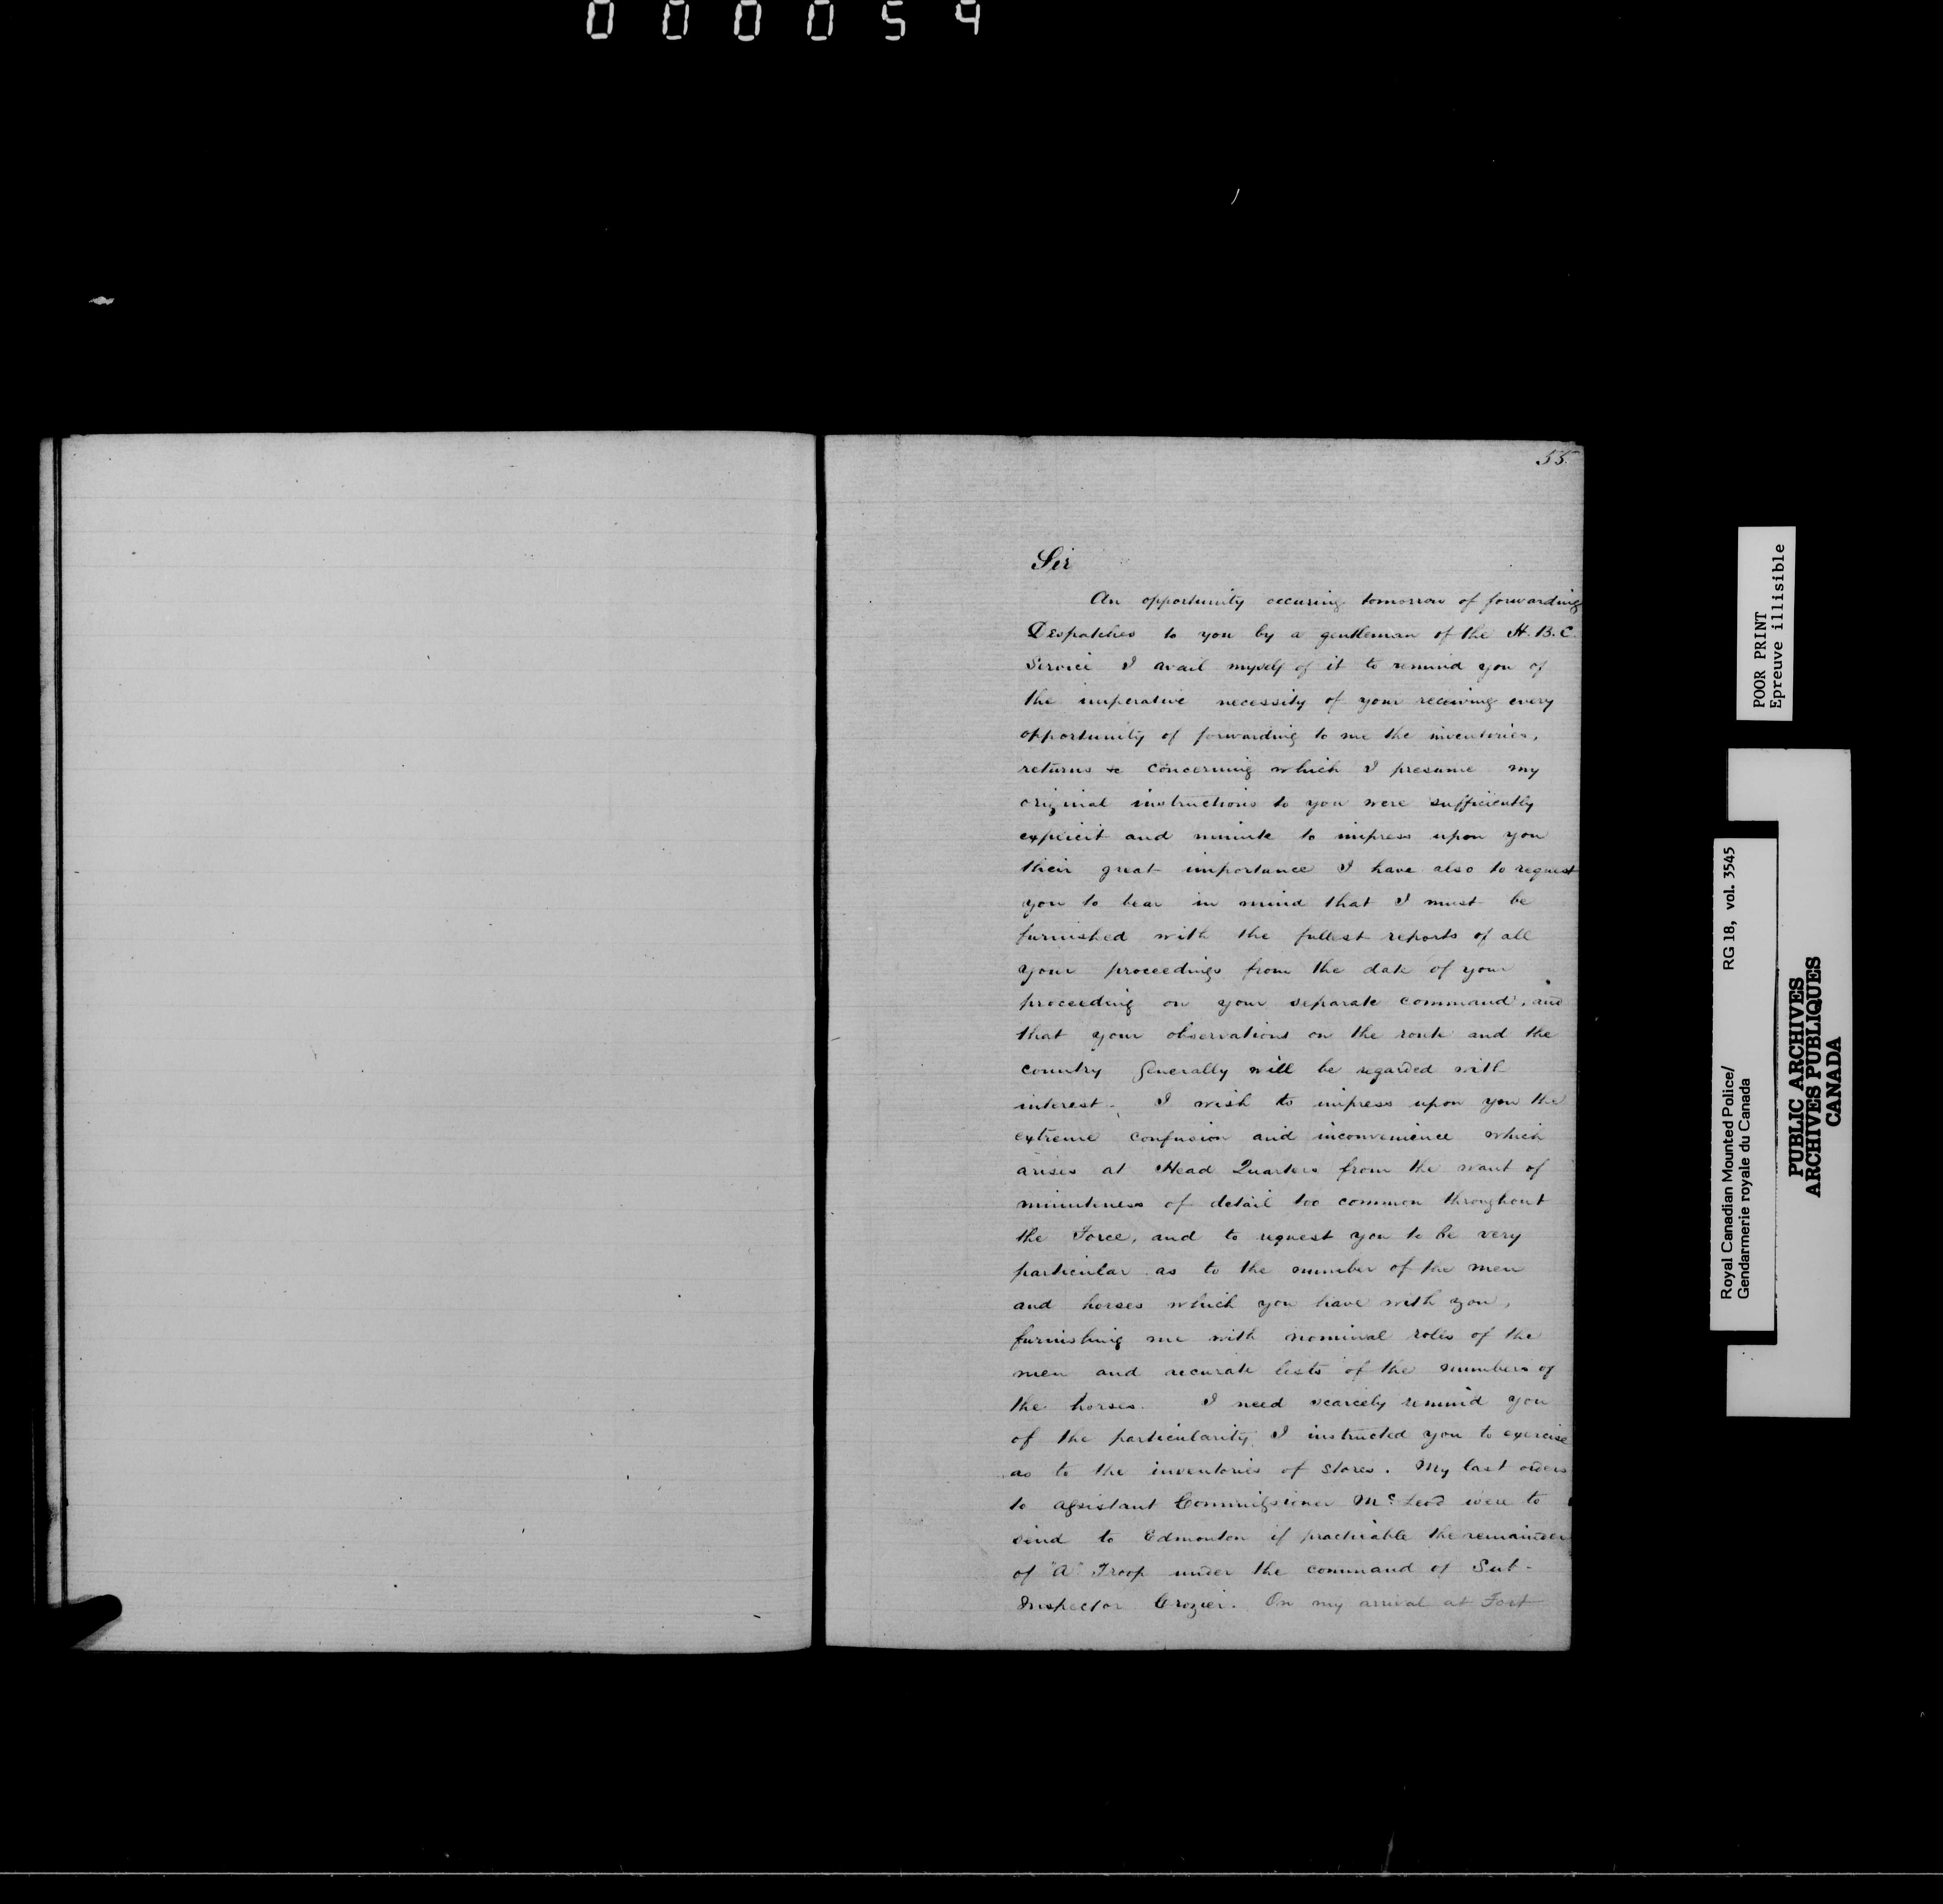 000054
55.
Sir
An opportunity occuring tomorrow of forwarding
Despatches to you by a gentleman of the H.B.C.
Service I avail myself of it to remind you of
the imperative necessity of your receiving every
opportunity of forwarding to me the inventories,
returns &c concerning which I presume my
original instructions to you were sufficiently
explicit and minute to impress upon you
their great importance I have also to request
you to bear in mind that I must be
furnished with the fullest reports of all
your proceedings from the date of your
proceeding on your separate command, and
that your observations on the route and the
country generally will be regarded with
interest. I wish to impress upon you the
extreme confusion and inconvenience which
arises at Head Quarters from the want of
minuteness of detail too common throughout
the Force, and to request you to be very
particular as to the number of the men
and horses which you have with you,
furnishing me with nominal rolls of the
men and accurate lists of the numbers of
the horses. I need scarcely remind you
of the particularity I instructed you to exercise
as to the inventories of stores. My last orders
to assistant Commissioner McLeod were to
send to Edmonton if practicable the remainder
of "A" Troop under the command of Sub-
Inspector Crozier. On my arrival at Fort
POOR PRINT
Epreuve illisible
Royal Canadian Mounted Police/ RG 18, vol. 3545
Gendarmerie royale du Canada
PUBLIC ARCHIVES
ARCHIVES PUBLIQUES
CANADA